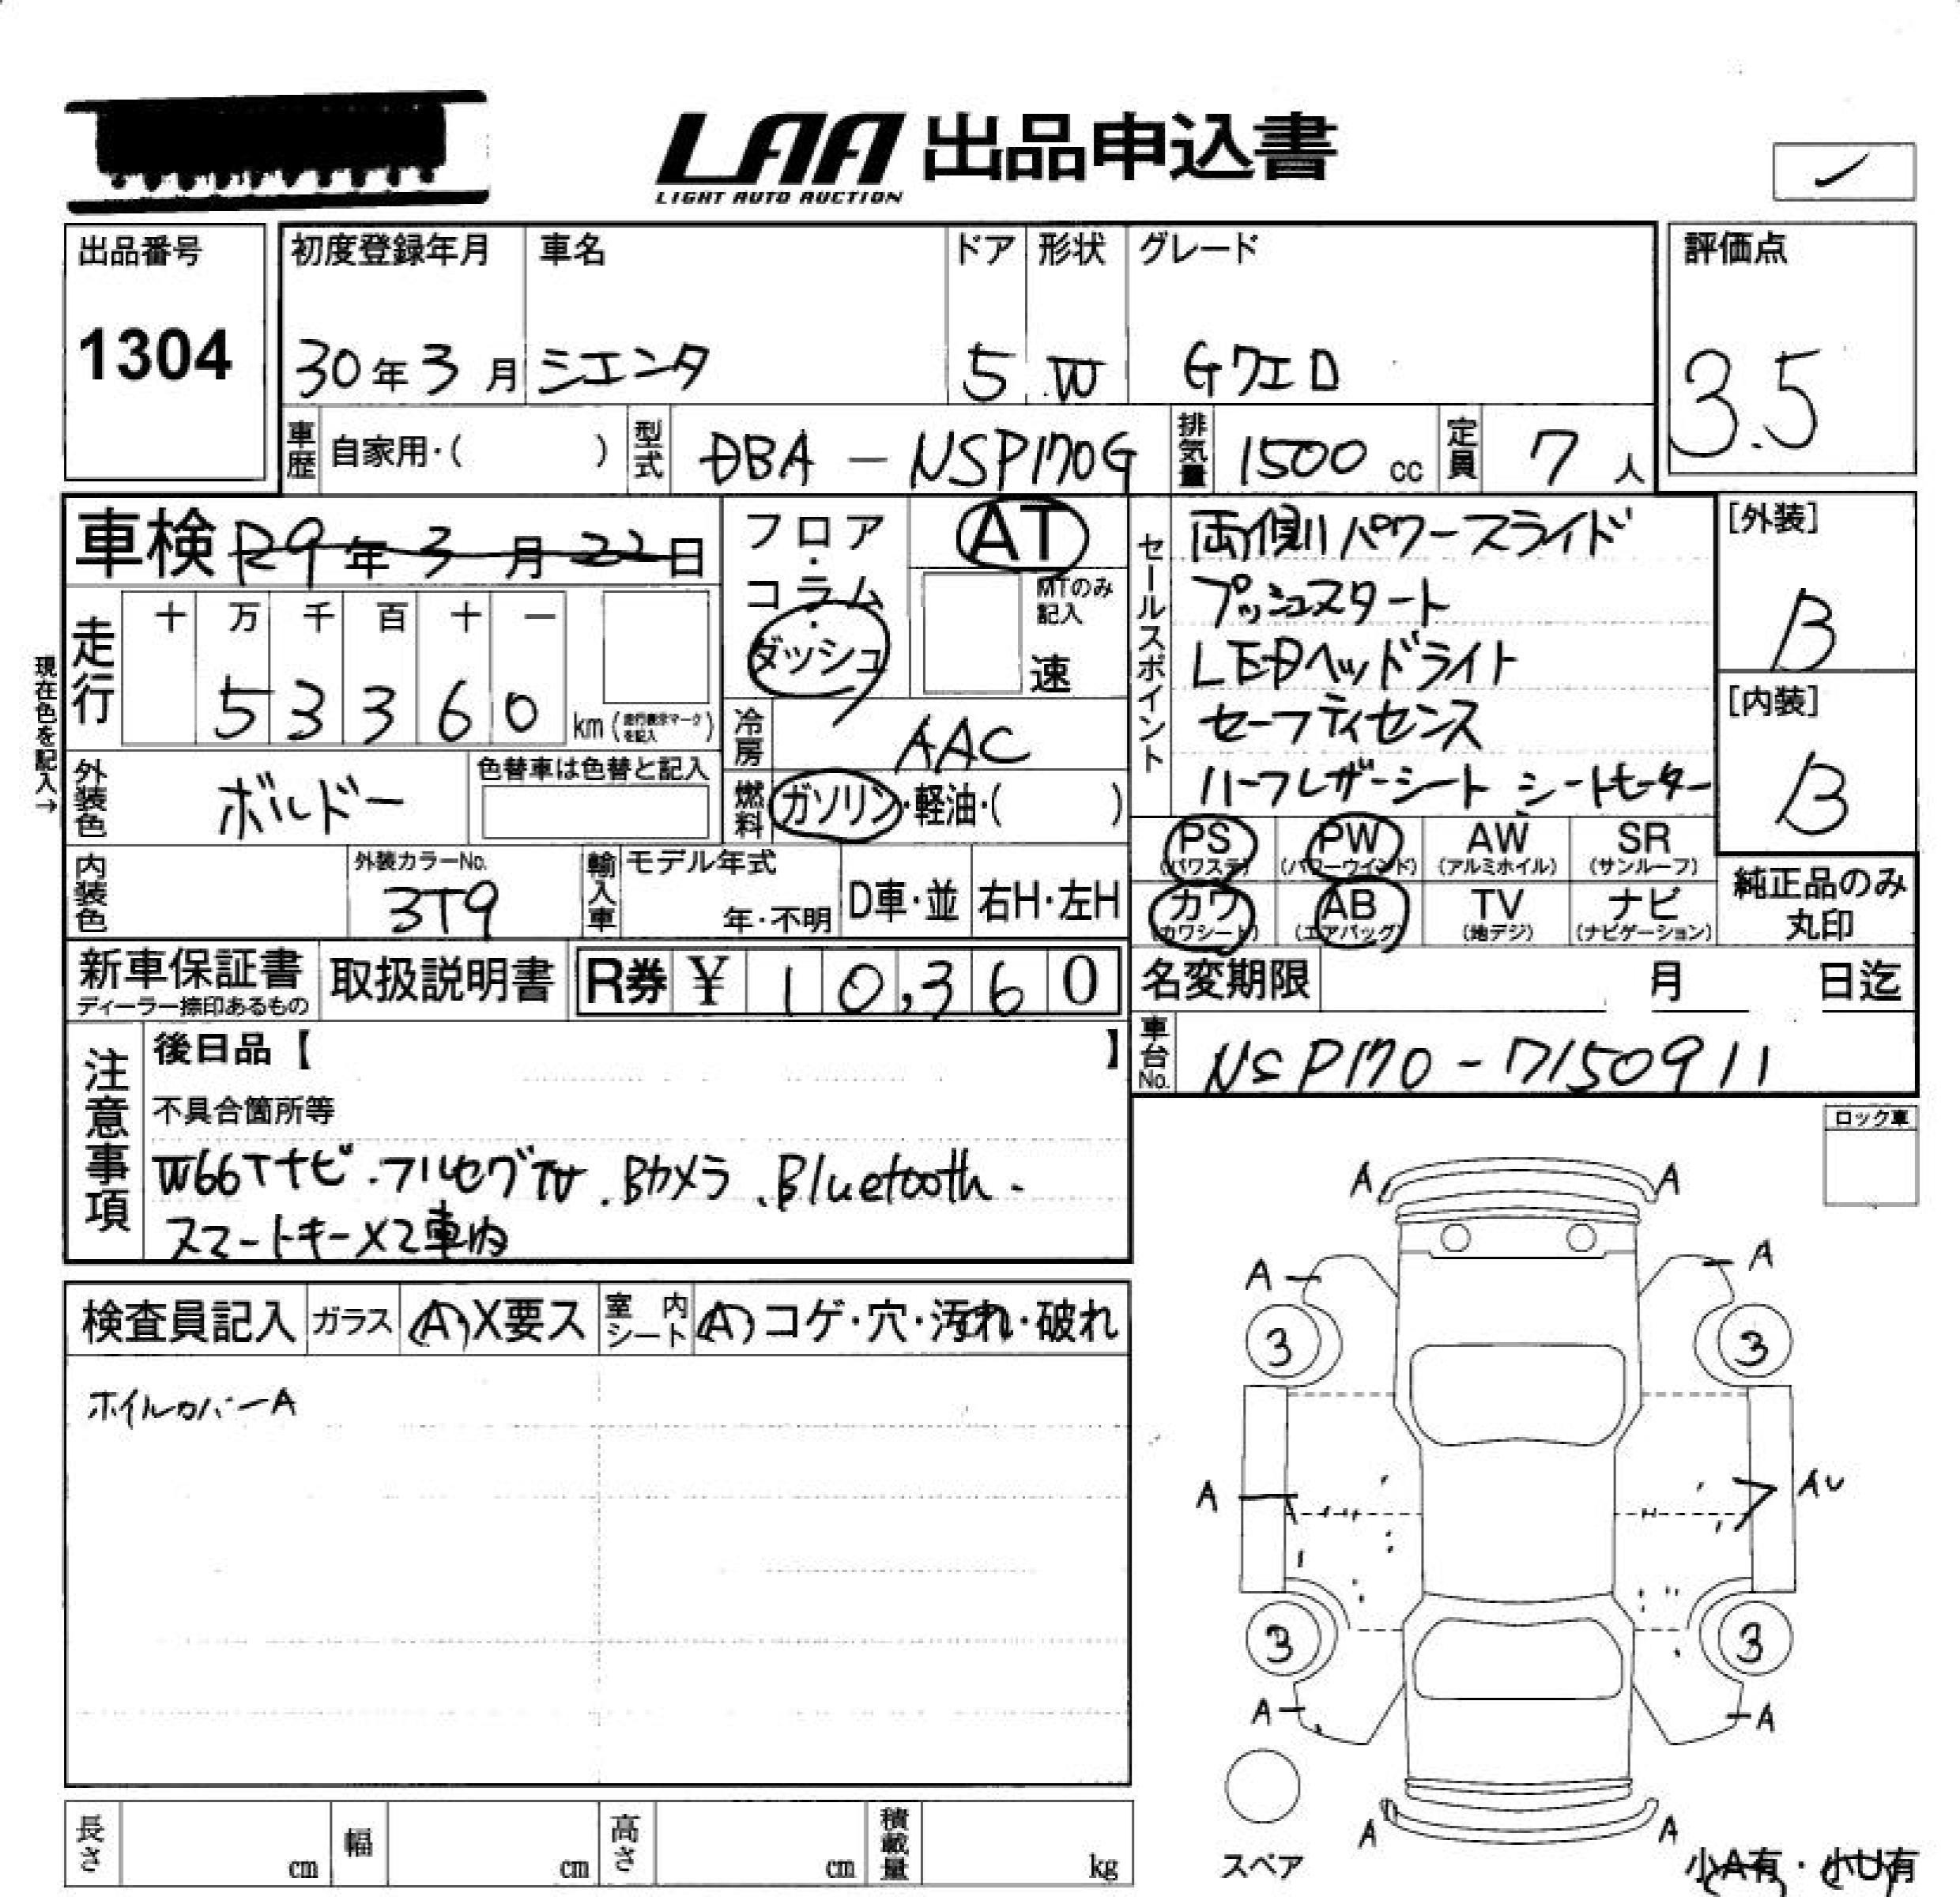 LAA 出品申込書
LIGHT AUTO AUCTION
出品番号
1304
初度登録年月 車名 ドア 形状 グレード
30年3月 シエンタ 5 W Gクエロ
評価点
3.5
車歴 自家用・( ) 型式 DBA - NSP170G 排気量 1500 cc 定員 7 人
車検 R9年3月22日
走行 十 万 千 百 十 一
5 3 3 6 0 km (走行表示マークを記入)
現在色を記入→
フロア・コラム・ダッシュ
AT
MTのみ記入
速
冷房 AAC
燃料 ガソリン・軽油・( )
セールスポイント
両側パワースライド
プッシュスタート
LEDヘッドライト
セーフティセンス
ハーフレザーシート シートヒーター
[外装]
B
[内装]
B
外装色 ボルドー 色替車は色替と記入
内装色 外装カラーNo. 3T9
輸入車 モデル年式 年・不明 D車・並 右H・左H
PS (パワステ) PW (パワーウインド) AW (アルミホイル) SR (サンルーフ)
カワ (カワシート) AB (エアバッグ) TV (地デジ) ナビ (ナビゲーション)
純正品のみ丸印
新車保証書 ディーラー捺印あるもの 取扱説明書 R券 ¥ 10,360
名変期限 月 日迄
車台No. NSP170-7150911
注意事項
後日品【 】
不具合箇所等
W66Tナビ.フルセグTV.Bカメラ.Bluetooth.
スマートキー×2車内
ロック車
検査員記入 ガラス A X要ス 室内シート A コゲ・穴・汚れ・破れ
ホイルカバーA
A A
A A
3 3
A AU
3 3
A A
A A
スペア
小A有・小U有
長さ cm 幅 cm 高さ cm 積載量 kg